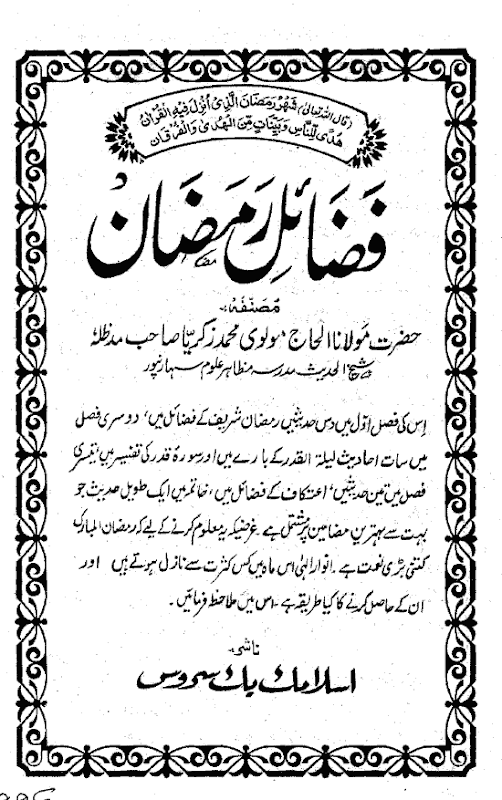 (قال اللہ تعالیٰ) شَهْرُ رَمَضَانَ الَّذِیْ اُنْزِلَ فِیْهِ الْقُرْاٰنُ
هُدًى لِّلنَّاسِ وَبَيِّنَاتٍ مِّنَ الْهُدٰى وَالْفُرْقَانِ
فَضَائِلِ رَمَضَانْ
مصنفہ
حضرت مولانا الحاج مولوی محمد زکریا صاحب مدظلہٗ
شیخ الحدیث مدرسہ مظاہر علوم سہارنپور
اس کی فصل اوّل میں دس حدیثیں رمضان شریف کے فضائل میں، دوسری فصل
میں سات احادیث لیلۃ القدر کے بارے میں اور سورۂ قدر کی تفسیر میں، تیسری
فصل میں تین حدیثیں، اعتکاف کے فضائل میں، خاتمہ میں ایک طویل حدیث جو
بہت سے بہترین مضامین پر مشتمل ہے۔ غرضیکہ یہ معلوم کرنے کے لیے کہ رمضان المبارک
کتنی بڑی نعمت ہے۔ انوار الٰہی اس ماہ میں کس کثرت سے نازل ہوتے ہیں اور
ان کے حاصل کرنے کا کیا طریقہ ہے۔ اس میں ملاحظہ فرمائیں۔
ناشر
اسلامک بک سروس